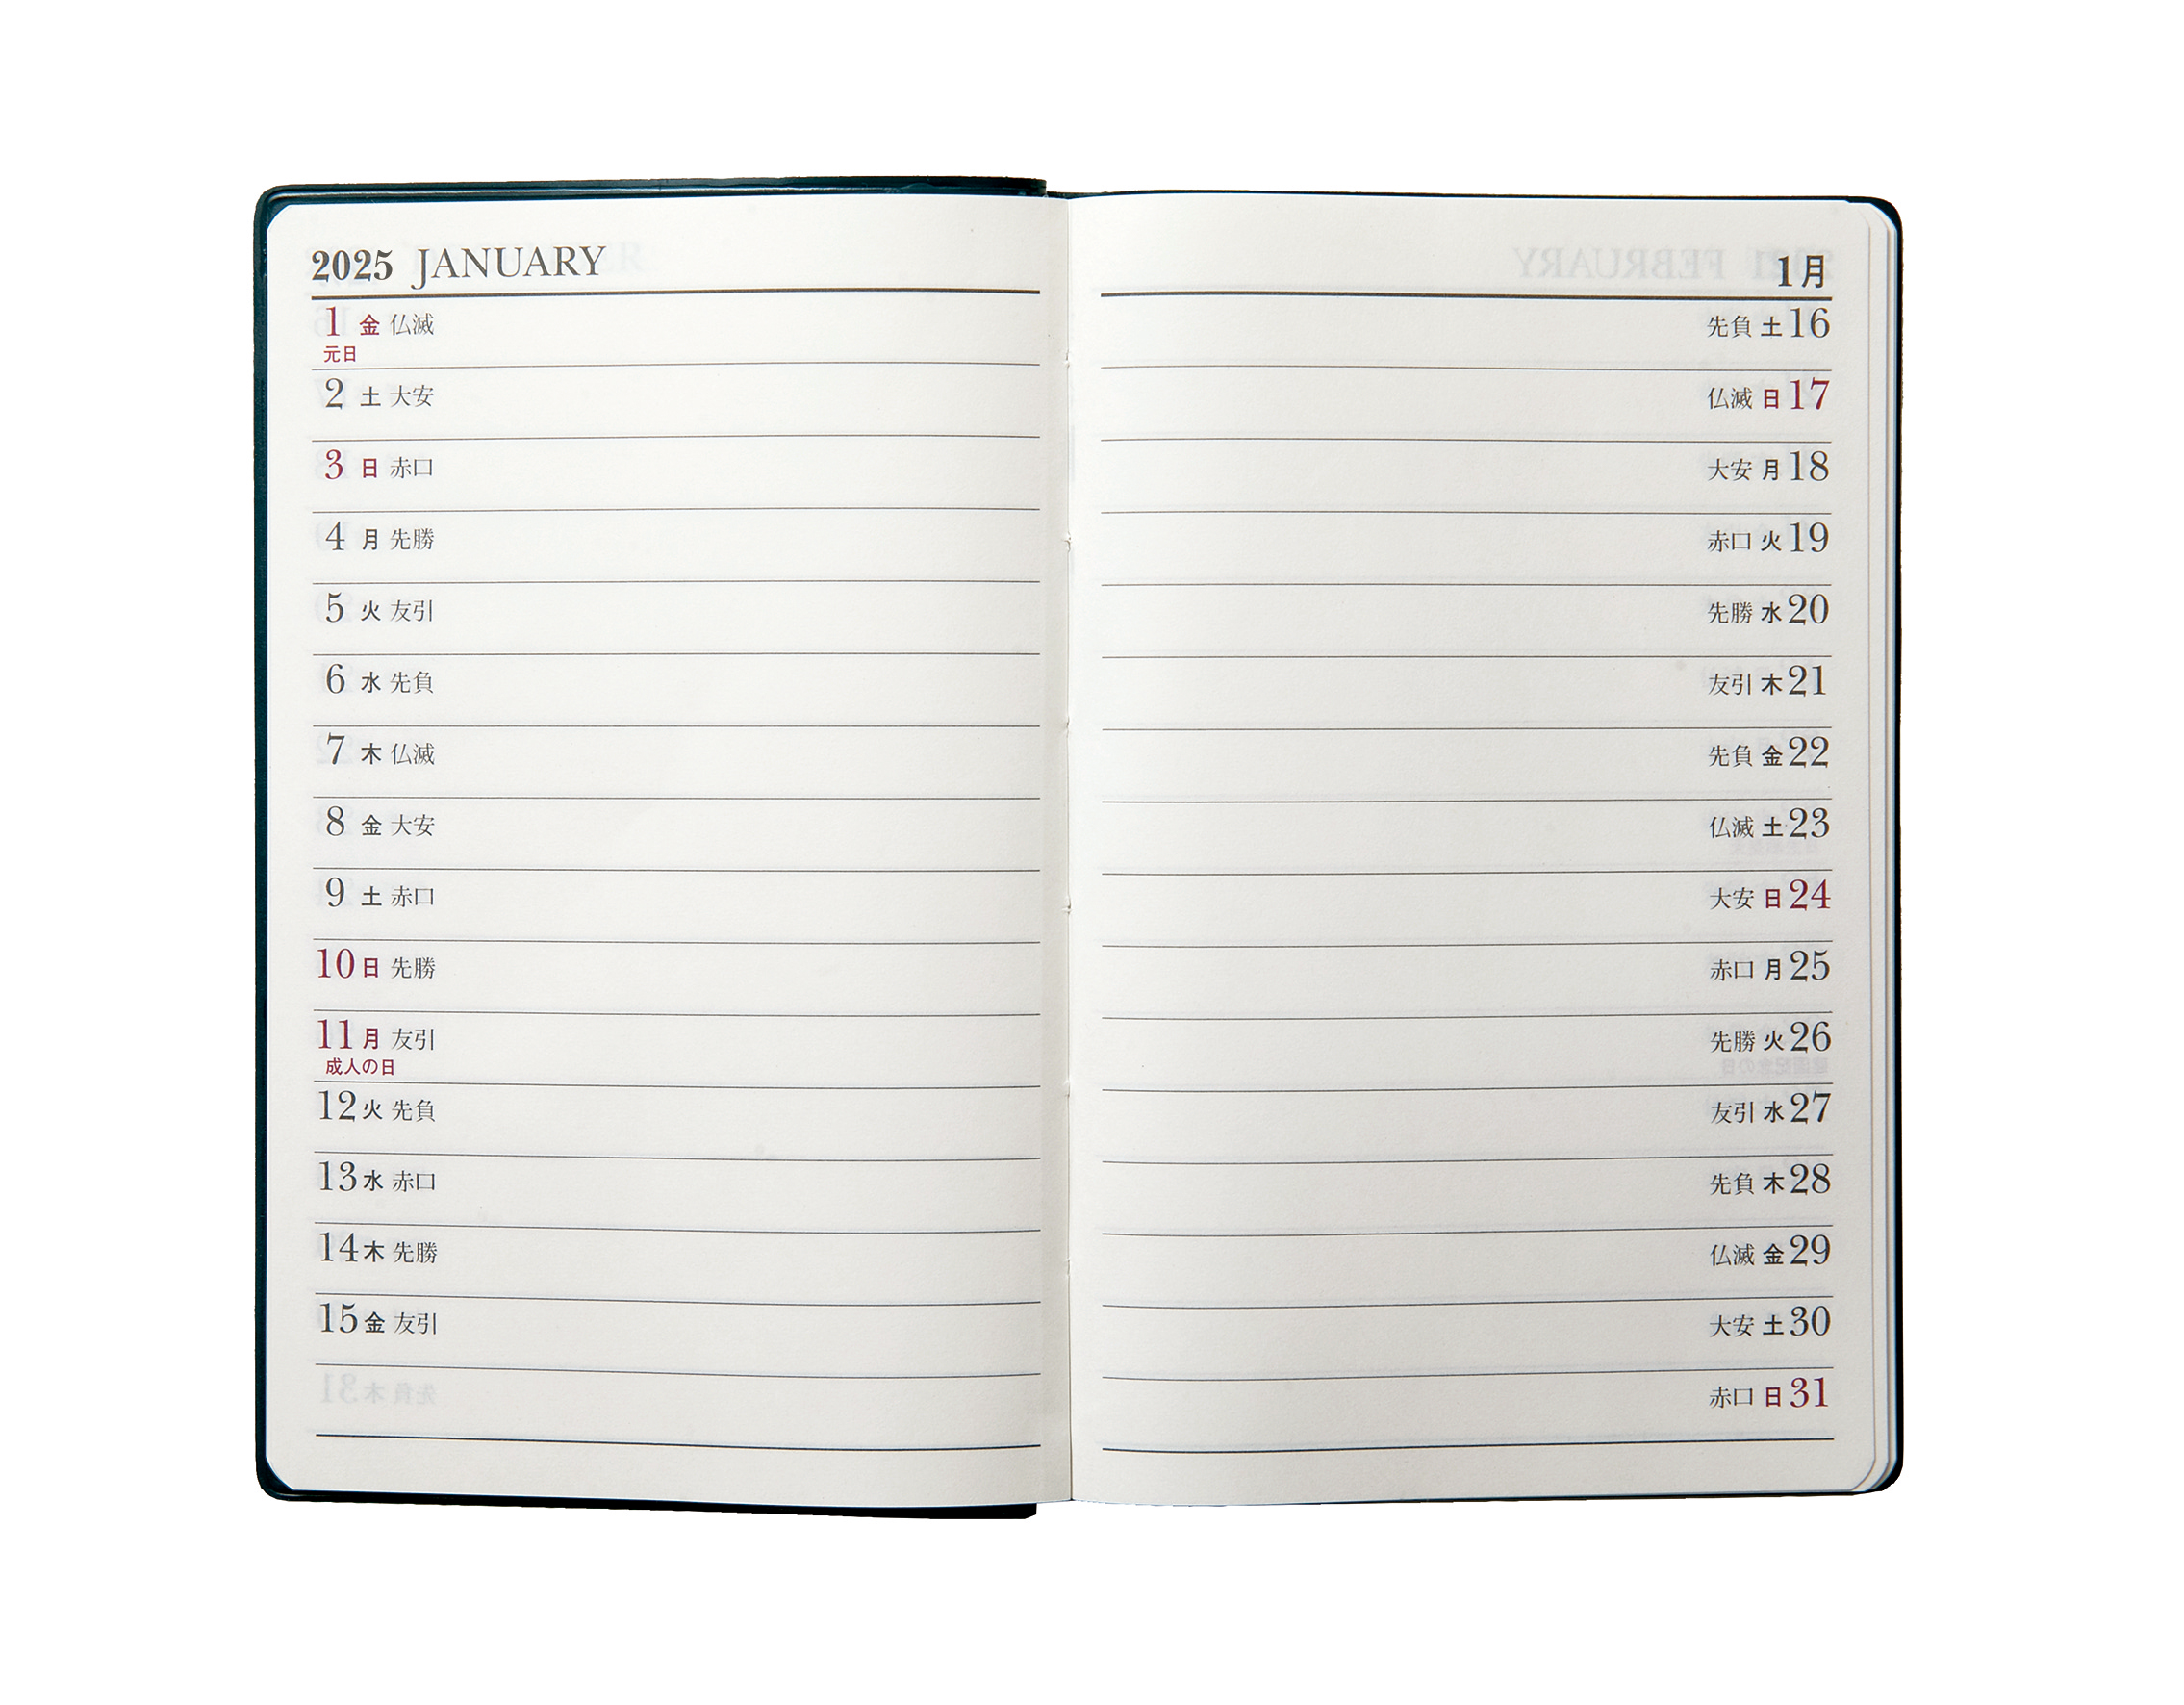 2025 JANUARY
1 金 仏滅
元日
2 土 大安
3 日 赤口
4 月 先勝
5 火 友引
6 水 先負
7 木 仏滅
8 金 大安
9 土 赤口
10 日 先勝
11 月 友引
成人の日
12 火 先負
13 水 赤口
14 木 先勝
15 金 友引
1月
先負 土 16
仏滅 日 17
大安 月 18
赤口 火 19
先勝 水 20
友引 木 21
先負 金 22
仏滅 土 23
大安 日 24
赤口 月 25
先勝 火 26
友引 水 27
先負 木 28
仏滅 金 29
大安 土 30
赤口 日 31